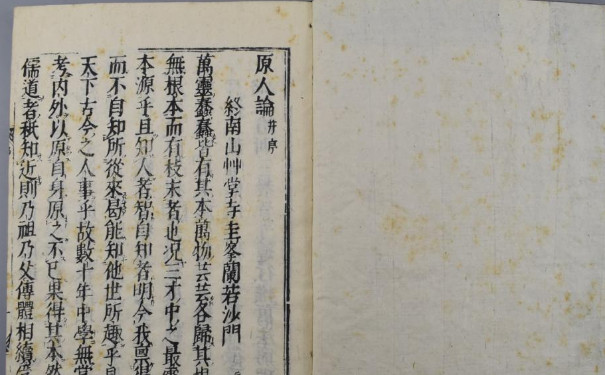 原人論并序
終南山艸堂寺圭峯蘭若沙門
萬靈蠢蠢皆有其本萬物芸芸各歸其
無根本而有枝末者也况三才中之最靈
本源乎且知人者智自知者明今我禀得
而不自知所從來曷能知他世所趣乎
天下古今之人事乎故數十年中學無常
考内外以原自身原之不已果得其本然
儒道者秖知近則乃祖乃父傳體相續